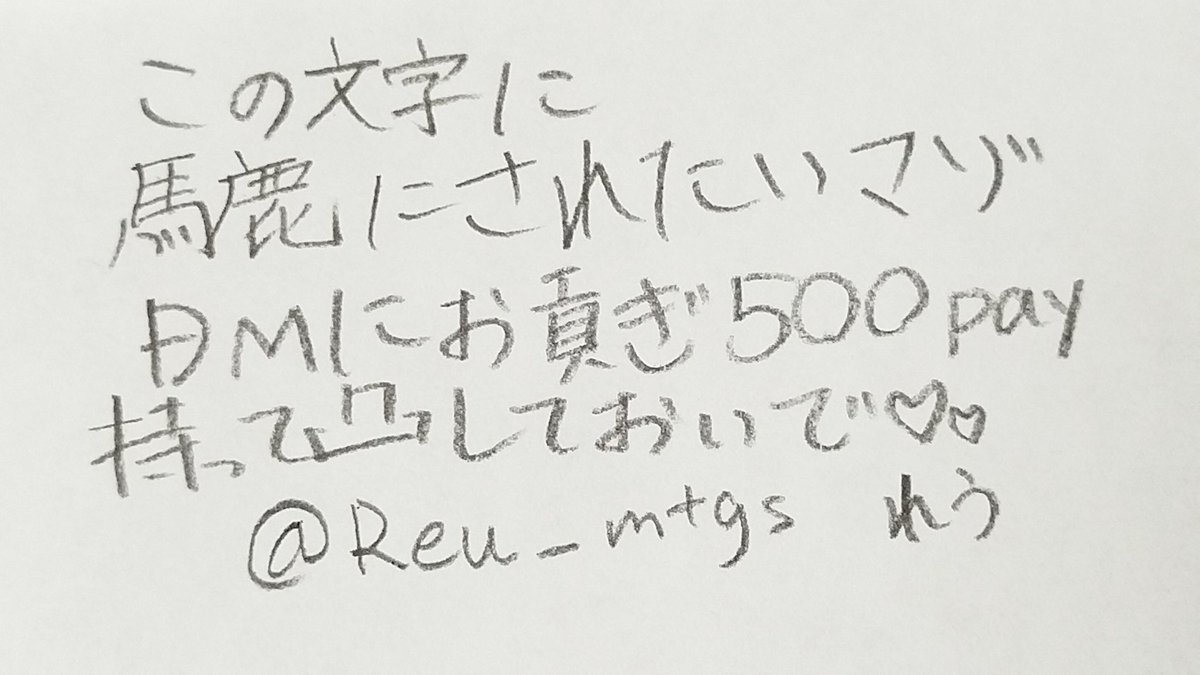 この文字に
馬鹿にされたいマゾ
DMにお貢ぎ500pay
持って凸しておいで♡♡
@Reu_mtgs れう